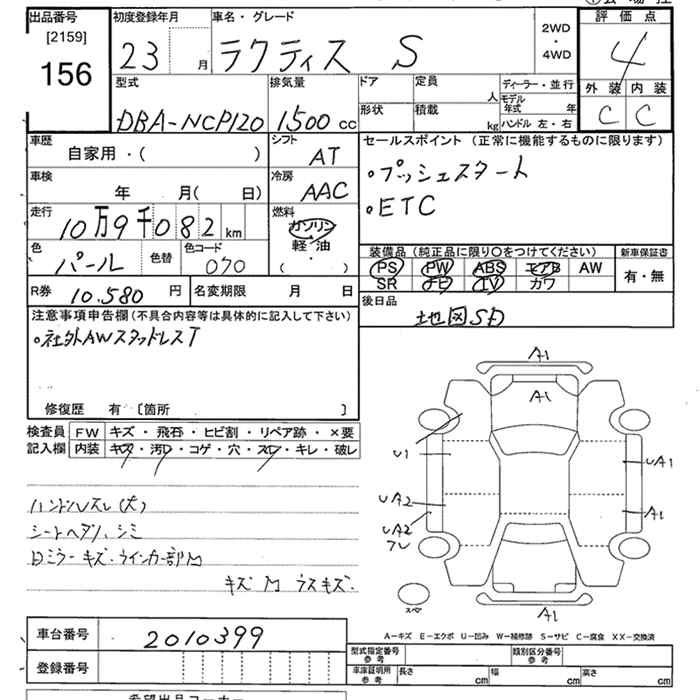 出品番号
[2159]
156
初度登録年月
23 月
車名・グレード
ラクティス S
2WD
・
4WD
評価点
4
外装 内装
C C
型式
DBA-NCP120
排気量
1500 cc
ドア
定員
人
ディーラー・並行
モデル年式 年
形状
積載
kg
ハンドル 左・右
車歴
自家用・( )
シフト
AT
セールスポイント (正常に機能するものに限ります)
・プッシュスタート
・ETC
車検
年 月( 日)
冷房
AAC
走行
10万9千082 km
燃料
ガソリン
軽・油
( ・ )
色
パール
色替
色コード
070
装備品 (純正品に限り○をつけてください)
新車保証書
PS PW ABS エアB AW
SR ナビ TV カワ
有・無
R券
10.580 円
名変期限 月 日
後日品
地図SD
注意事項申告欄(不具合内容等は具体的に記入して下さい)
・社外AWスタッドレスT
修復歴 有 〔箇所 〕
検査員
記入欄
FW キズ・飛石・ヒビ割・リペア跡・×要
内装 キズ・汚レ・コゲ・穴・スレ・キレ・破レ
ハンドルスレ(大)
シートヘタリ、シミ
ミラーキズ・ウインカー部
キズ
A1
A1
U1
UA1
UA2
A1
UA2
A1
スペア
A-キズ E-エクボ U-凹み W-補修跡 S-サビ C-腐食 XX-交換済
車台番号
2010399
登録番号
型式指定番号
参考
類別区分番号
参考
車庫証明用
参考
長さ cm
幅 cm
高さ cm